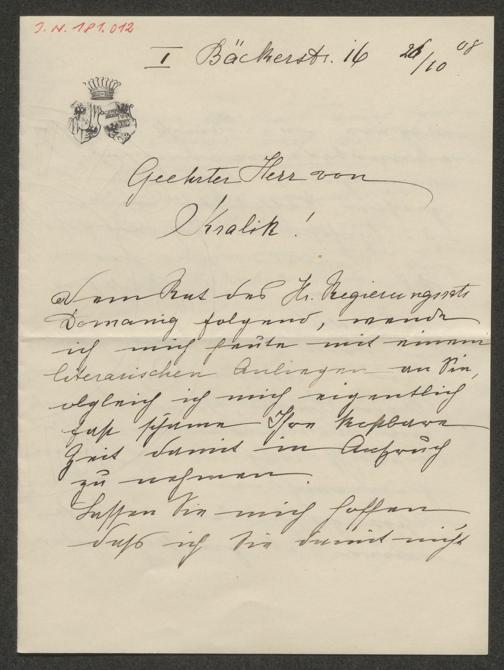 J. N. 181.012
I Bäckerstr. 16 26/10 08
Geehrter Herr von
Kralik!
Dem Rat des Hr. Regierungsrats
Domanig folgend, wende
ich mich heute mit einem
literarischen Anliegen an Sie,
obgleich ich mich eigentlich
fast schäme Ihre kostbare
Zeit damit in Anspruch
zu nehmen.
Lassen Sie mich hoffen,
daß ich Sie damit nicht